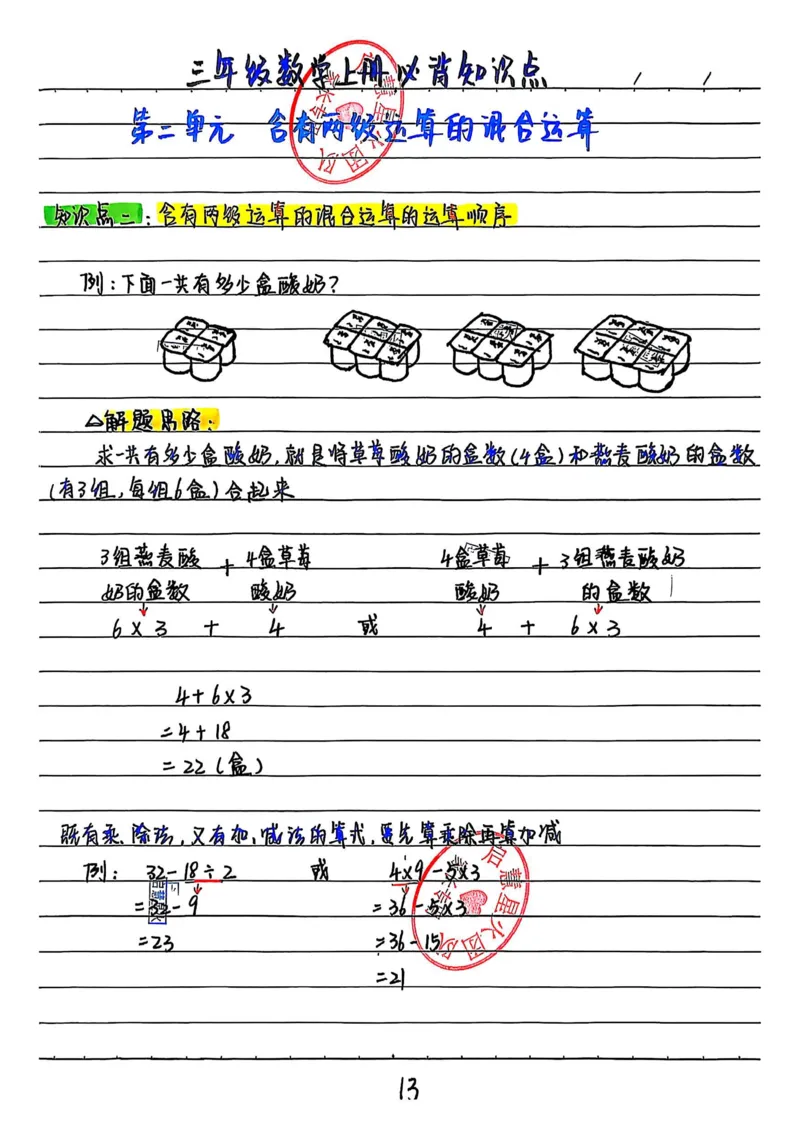 三年级数学上册必背知识点
第二单元 含有两级运算的混合运算
知识点二：含有两级运算的混合运算的运算顺序
例：下面一共有多少盒酸奶？
△解题思路：
求一共有多少盒酸奶，就是将草莓酸奶的盒数（4盒）和燕麦酸奶的盒数
（有3组，每组6盒）合起来
3组燕麦酸 + 4盒草莓 4盒草莓 + 3组燕麦酸奶
奶的盒数 酸奶 酸奶 的盒数
6×3 + 4 或 4 + 6×3
4+6×3
=4+18
=22（盒）
既有乘、除法，又有加、减法的算式，要先算乘除再算加减
例： 32-18÷2 或 4×9-5×3
=32-9 =36-5×3
=23 =36-15
=21
启慧星火团队
13